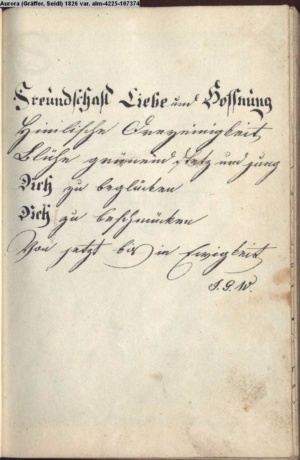 Aurora (Gräffer, Seidl) 1826 var. alm-4225-107374
Freundschaft Liebe und Hoffnung
Himlische Dreyeinigkeit,
Blühe grünend stetz und jung
Dich zu beglücken
Dich zu beschmücken
Von jetzt bis in Ewigkeit
J. G. W.